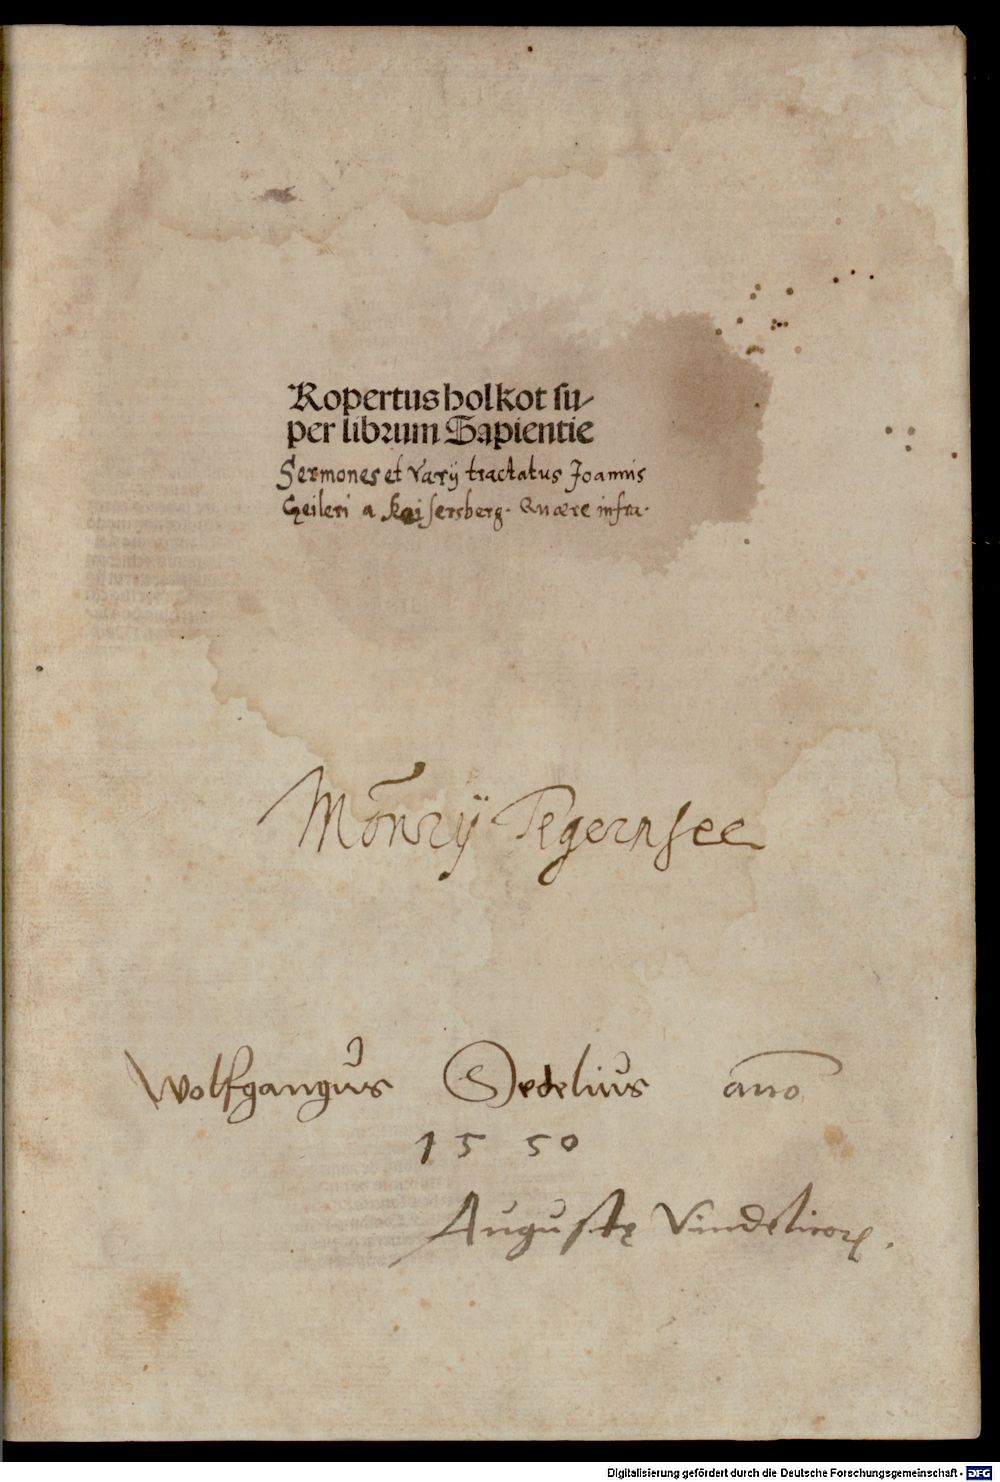 Ropertus holkot su-
per librum Sapientie
Sermones et varij tractatus Joannis
Geileri a Kaisersberg. Quære infra.
Mōnrij Tegernsee
Wolfgangus Sedelius año
1550
Augustę Vindelicorꝝ.
Digitalisierung gefördert durch die Deutsche Forschungsgemeinschaft - DFG